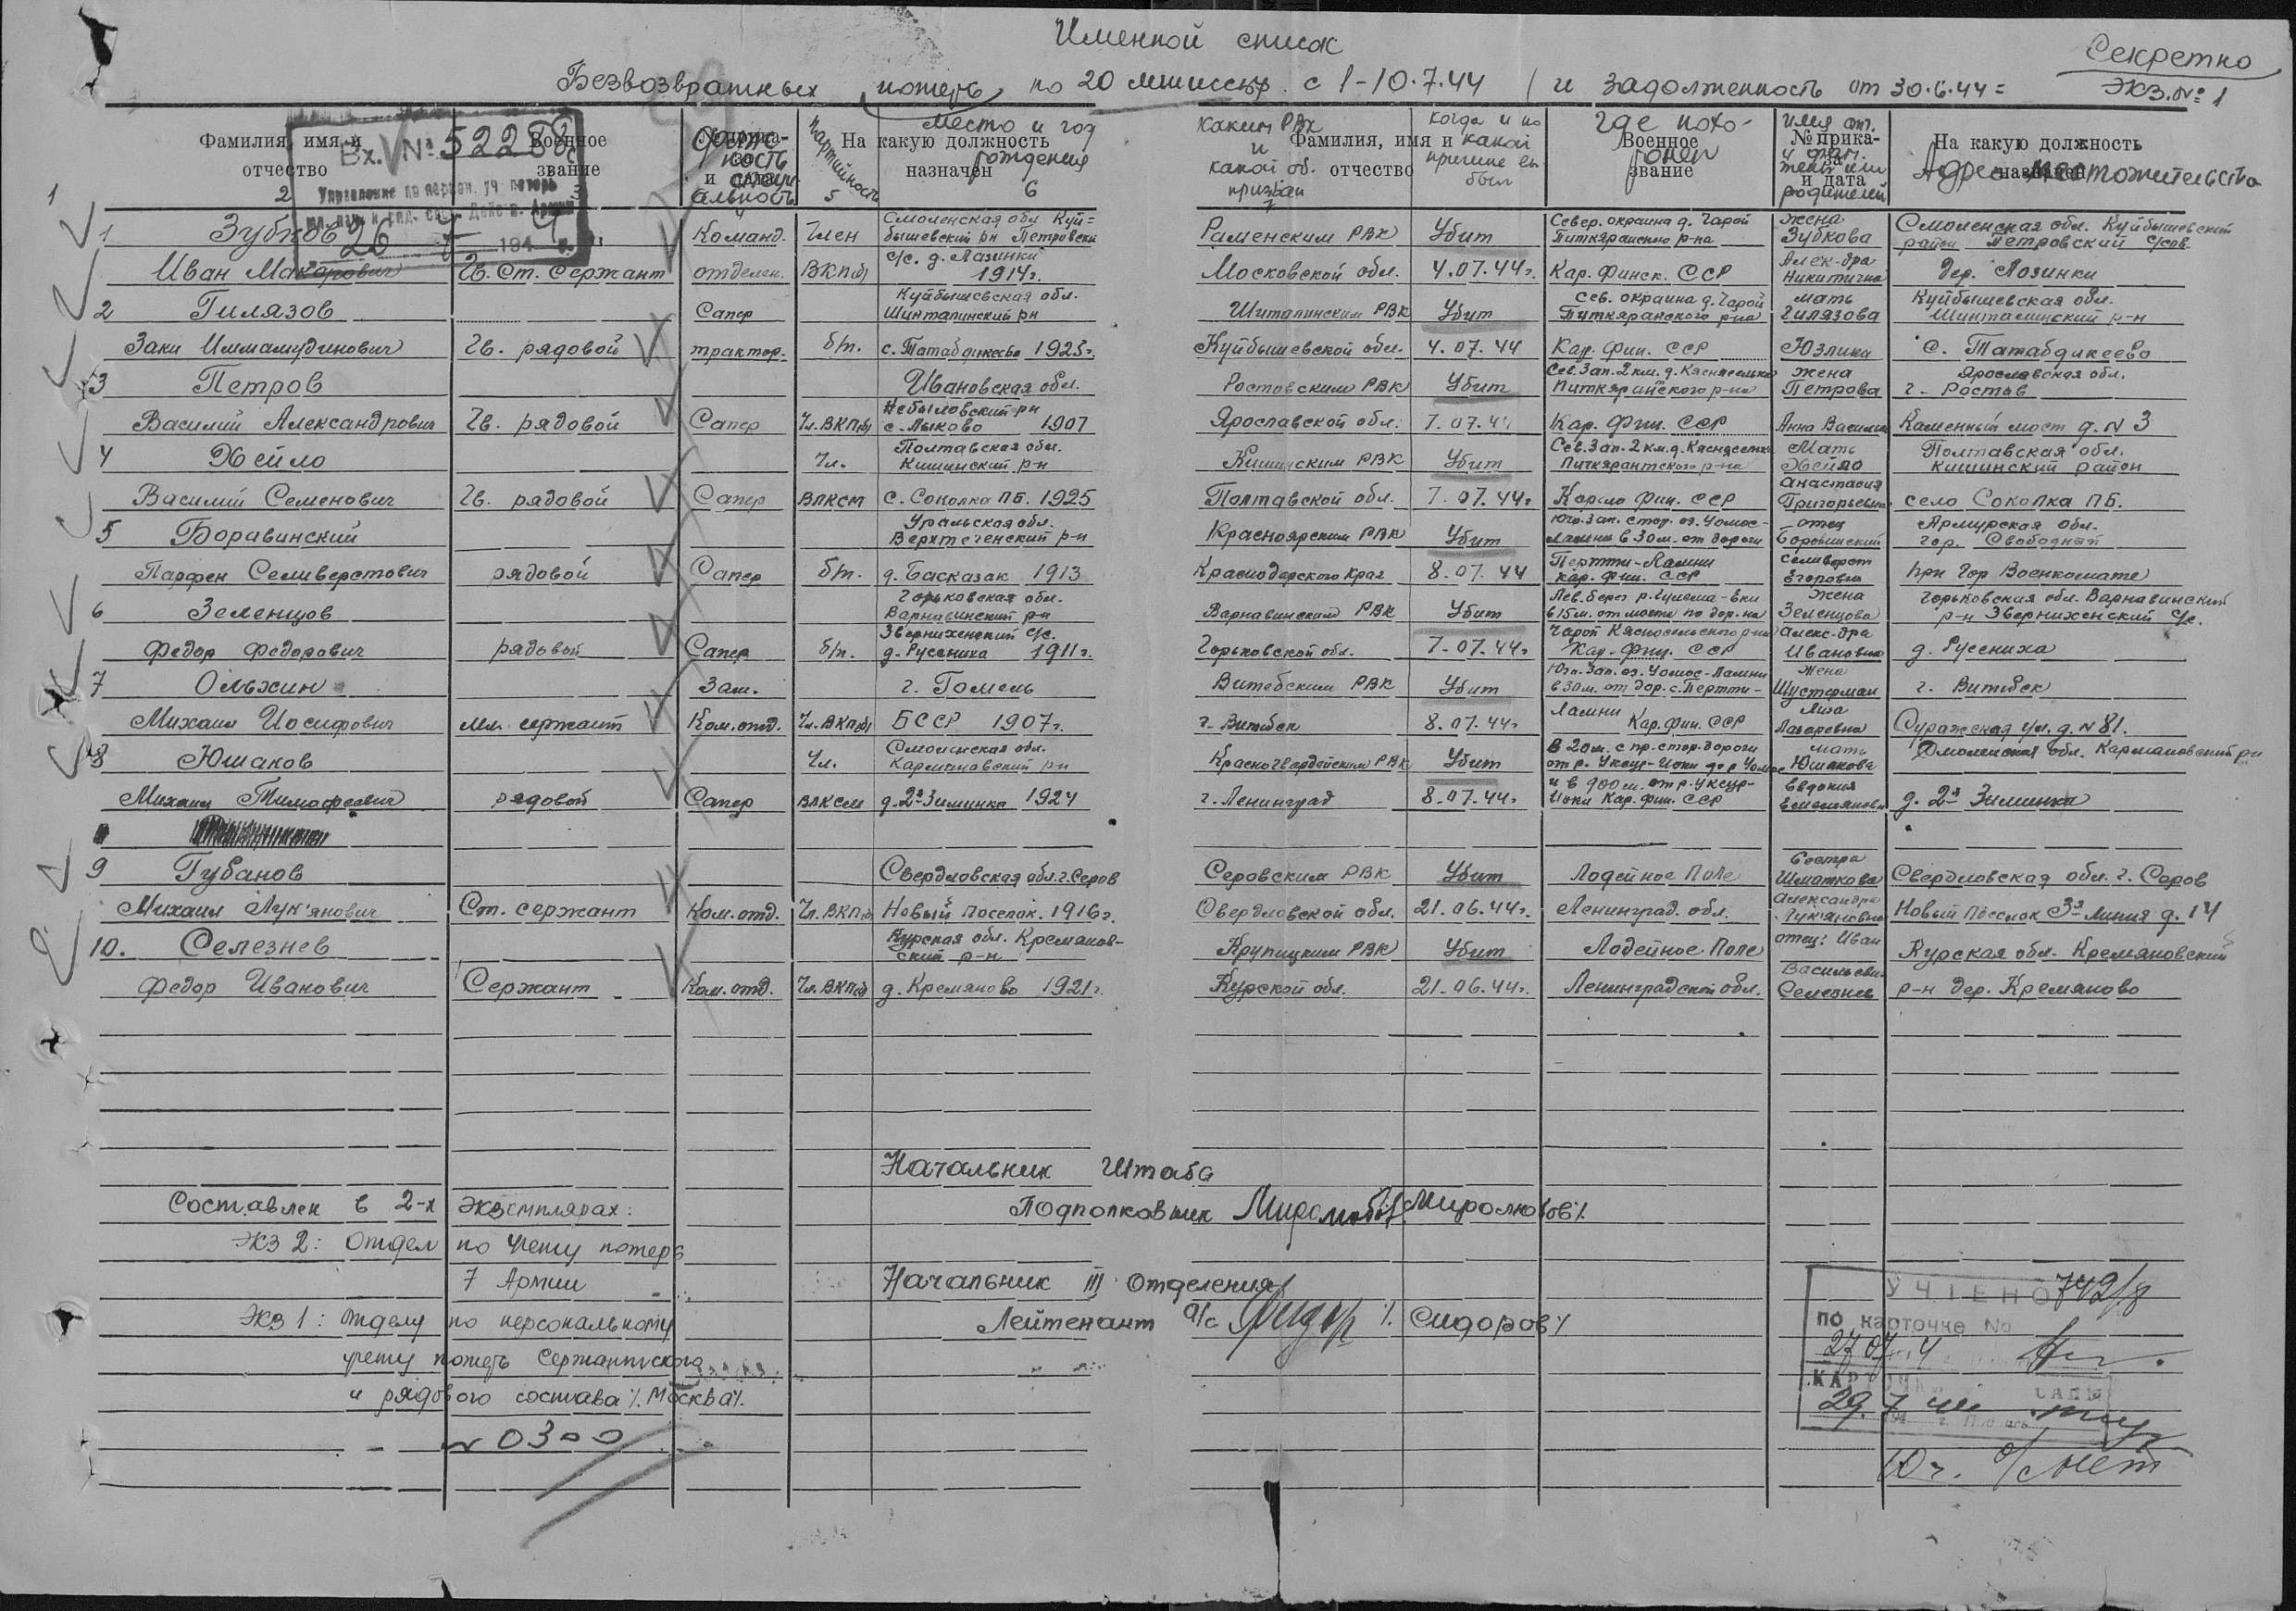 Именной список
Секретно
Безвозвратных потерь по 20 мшиссбр с 1-10.7.44 / и задолженность от 30.6.44=
Экз. № 1
Фамилия, имя и отчество
Военное звание
и специальность
партийность
На какую должность назначен
Место и год рождения
каким РВК и какой об. призван
Фамилия, имя и отчество
когда и по какой причине выбыл
Военное звание
где похоронен
№ приказа и дата
имя от. и фам. жены или родителей
На какую должность назначен
Адрес местожительства
1 2 3 4 5 6 7
Вх. № 52258с
Управление по персон. уч. потерь
26 7 194 4 г.
1 Зубков
Иван Макарович
Гв. Ст. Сержант
Команд. отделен.
Член ВКП(б)
Смоленская обл. Куй=
бышевский рн Петровски
с/с. д. Лазинки
1914г.
Раменским РВК
Московской обл.
Убит
4.07.44г.
Север. окраина д. Чарой
Питкяранского р-на
Кар. Финск. ССР
Жена
Зубкова
Алек-дра
Никитична
Смоленская обл. Куйбышевский
район Петровский с/сов.
Дер. Лозинки
2 Гилязов
Заки Иммамудинович
Гв. рядовой
Сапер
трактор.
б/п.
Куйбышевская обл.
Шинталинский рн
с. Татабдикеево 1925г.
Шиталинским РВК
Куйбышевской обл.
Убит
4.07.44
Сев. окраина д. Чарой
Питкяранского р-на
Кар. Фин. ССР
мать
Гилязова
Юзлика
Куйбышевская обл.
Шинталинский р-н
с. Татабдикеево
3 Петров
Василий Александрович
Гв. рядовой
Сапер
Чл. ВКП(б)
Ивановская обл.
Небыловский рн
с. Лыково 1907
Ростовским РВК
Ярославской обл.
Убит
7.07.44
Сев. Зап. 2 км. д. Кясняселька
Питкяранского р-на
Кар. Фин. ССР
жена
Петрова
Анна Василье
Ярославская обл.
г. Ростов
Каменный мост д. N 3
4 Хейло
Василий Семенович
Гв. рядовой
Сапер
Чл. ВЛКСМ
Полтавская обл.
Кишинский р-н
с. Соколка ПБ. 1925
Кишинским РВК
Полтавской обл.
Убит
7.07.44г
Сев. Зап. 2 км. д. Кяснясельк
Питкярантского р-на
Карело Фин. ССР
Мать
Хейло
Анастасия
Григорьевна
Полтавская обл.
Кишинский район
село Соколка ПБ.
5 Боравинский
Парфен Селиверстович
рядовой
Сапер
б/п.
Уральская обл.
Верхтеченский р-н
д. Басказак 1913
Красноярским РВК
Краснодарского Края
Убит
8.07.44
Юго. Зап. стор. оз. Уомос-
Ламми в 30 м. от дороги
Пертти-Ламми
Кар. Фин. ССР
отец
Боровинский
Селиверст
Егорович
Армурская обл.
гор. Свободный
при Гор Военкомате
6 Зеленцов
Федор Федорович
рядовой
Сапер
б/п.
Горьковская обл.
Варнавинский рн
Звернихенский с/с.
д. Русениха 1911г.
Варнавинским РВК
Горьковской обл.
Убит
7.07.44г
Лев. берег
в 15 м. от моста по дор. на
Кар. Фин. ССР
Жена
Зеленцова
Алекс-дра
Ивановна
Горьковская обл. Варнавинский
р-н Звернихенский с/с.
д. Руссниха
7 Ольхин
Михаил Иосифович
мл. сержант
Зам.
Ком. отд.
Чл. ВКП(б)
г. Гомель
БССР 1907г.
Витебским РВК
г. Витебск
Убит
8.07.44г
Юго-Зап. оз. Уомос-Ламми
в 30 м. от дор. с. Пертти-
Ламми Кар. Фин. ССР
Жена
Шустерман
Лиза
Лазаревна
г. Витебск
Суражская ул. д. N 81.
8 Юшаков
Михаил Тимофеевич
рядовой
Сапер
Чл. ВЛКСМ
Смоленская обл.
Кармановский рн
д. 2я Зиминка 1924
Красногвардейским РВК
г. Ленинград
Убит
8.07.44г.
В 20 м. с пр. стор. дороги
от р. Уксун-Иоки до р Уомос
и в 900 м. от р. Уксун-
Иоки Кар. Фин. ССР
мать
Юшакова
Евдокия
Емельяновн
Смоленская обл. Кармановский рн
д. 2я Зиминка
9 Губанов
Михаил Лук'янович
Ст. сержант
Ком. отд.
Чл. ВКП(б)
Свердловская обл. г. Серов
Новый поселок. 1916г.
Серовским РВК
Свердловской обл.
Убит
21.06.44г.
Лодейное Поле
Ленинград. обл.
Сестра
Шматкова
Александра
Лук'яновна
Свердловская обл. г. Серов
Новый поселок 3я линия д. 14
10. Селезнев
Федор Иванович
Сержант
Ком. отд.
Чл. ВКП(б)
Курская обл. Кремянов-
ский р-н
д. Кремяново 1921г.
Крупицким РВК
Курской обл.
Убит
21.06.44г.
Лодейное Поле
Ленинградской обл.
отец: Иван
Васильеви.
Селезнев
Курская обл. Кремяновский
р-н дер. Кремяново
Начальник Штаба
Подполковник Миролюбов /Миролюбов/.
Составлен в 2-х экземплярах:
Экз 2: Отдел по учету потерь
7 Армии
Начальник III отделения
Лейтенант а/с /. Сидоров /
Экз 1: Отделу по персональному
учету потерь Сержантского
и рядового состава /. Москва/.
N 0300
УЧТЕНО 742/8
ПО карточке No
27 07 4
29. 7
194 г.
10 ч.